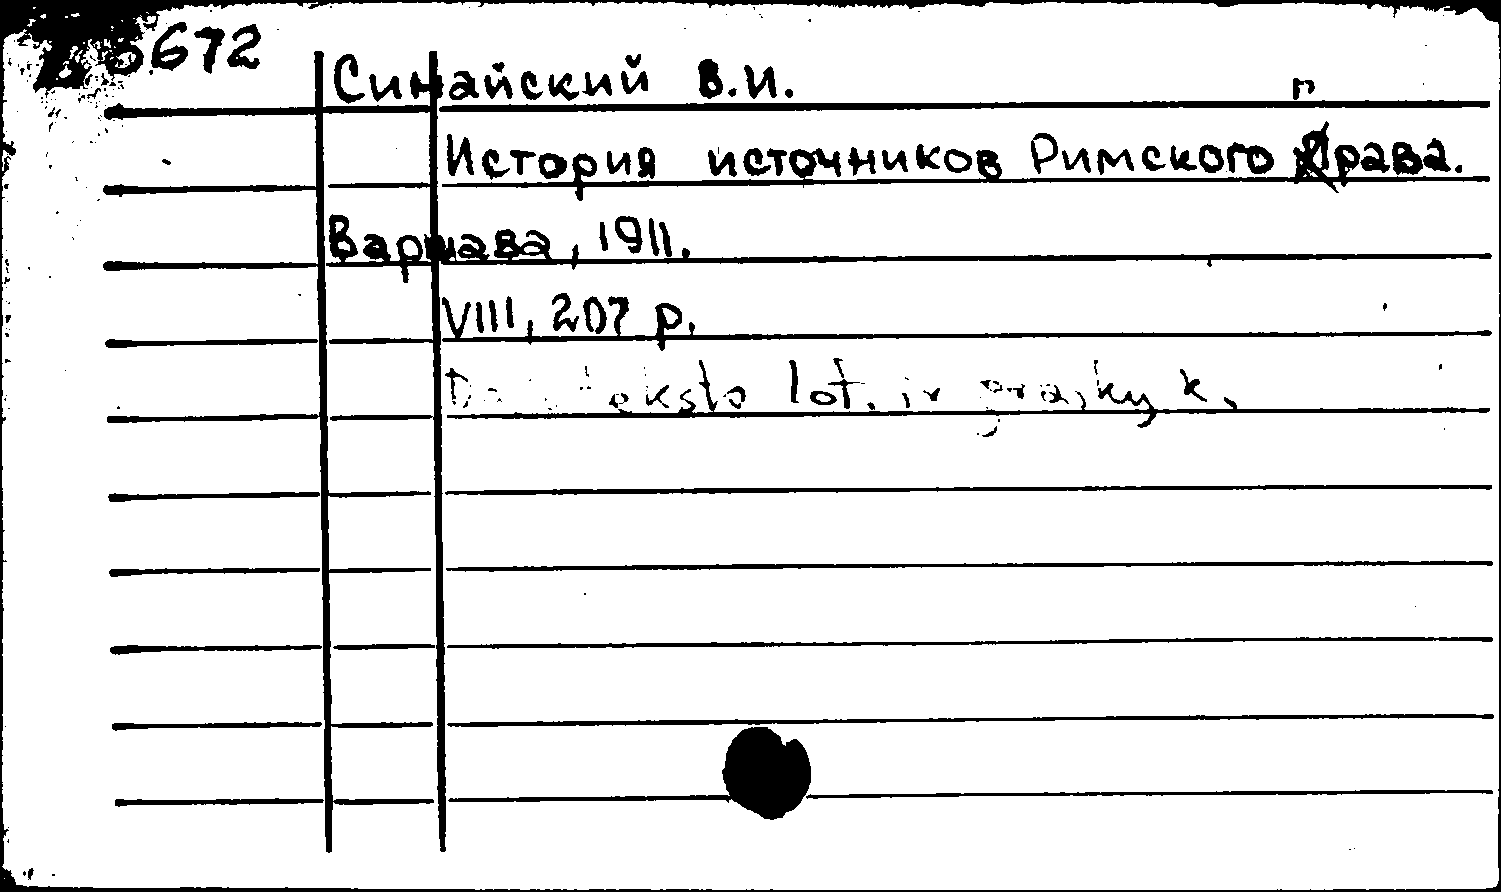 3672
Синайский В.И.
История источников Римского права.
Варшава, 1911.
VIII, 207 p.
teksto lot. ir graikų k.